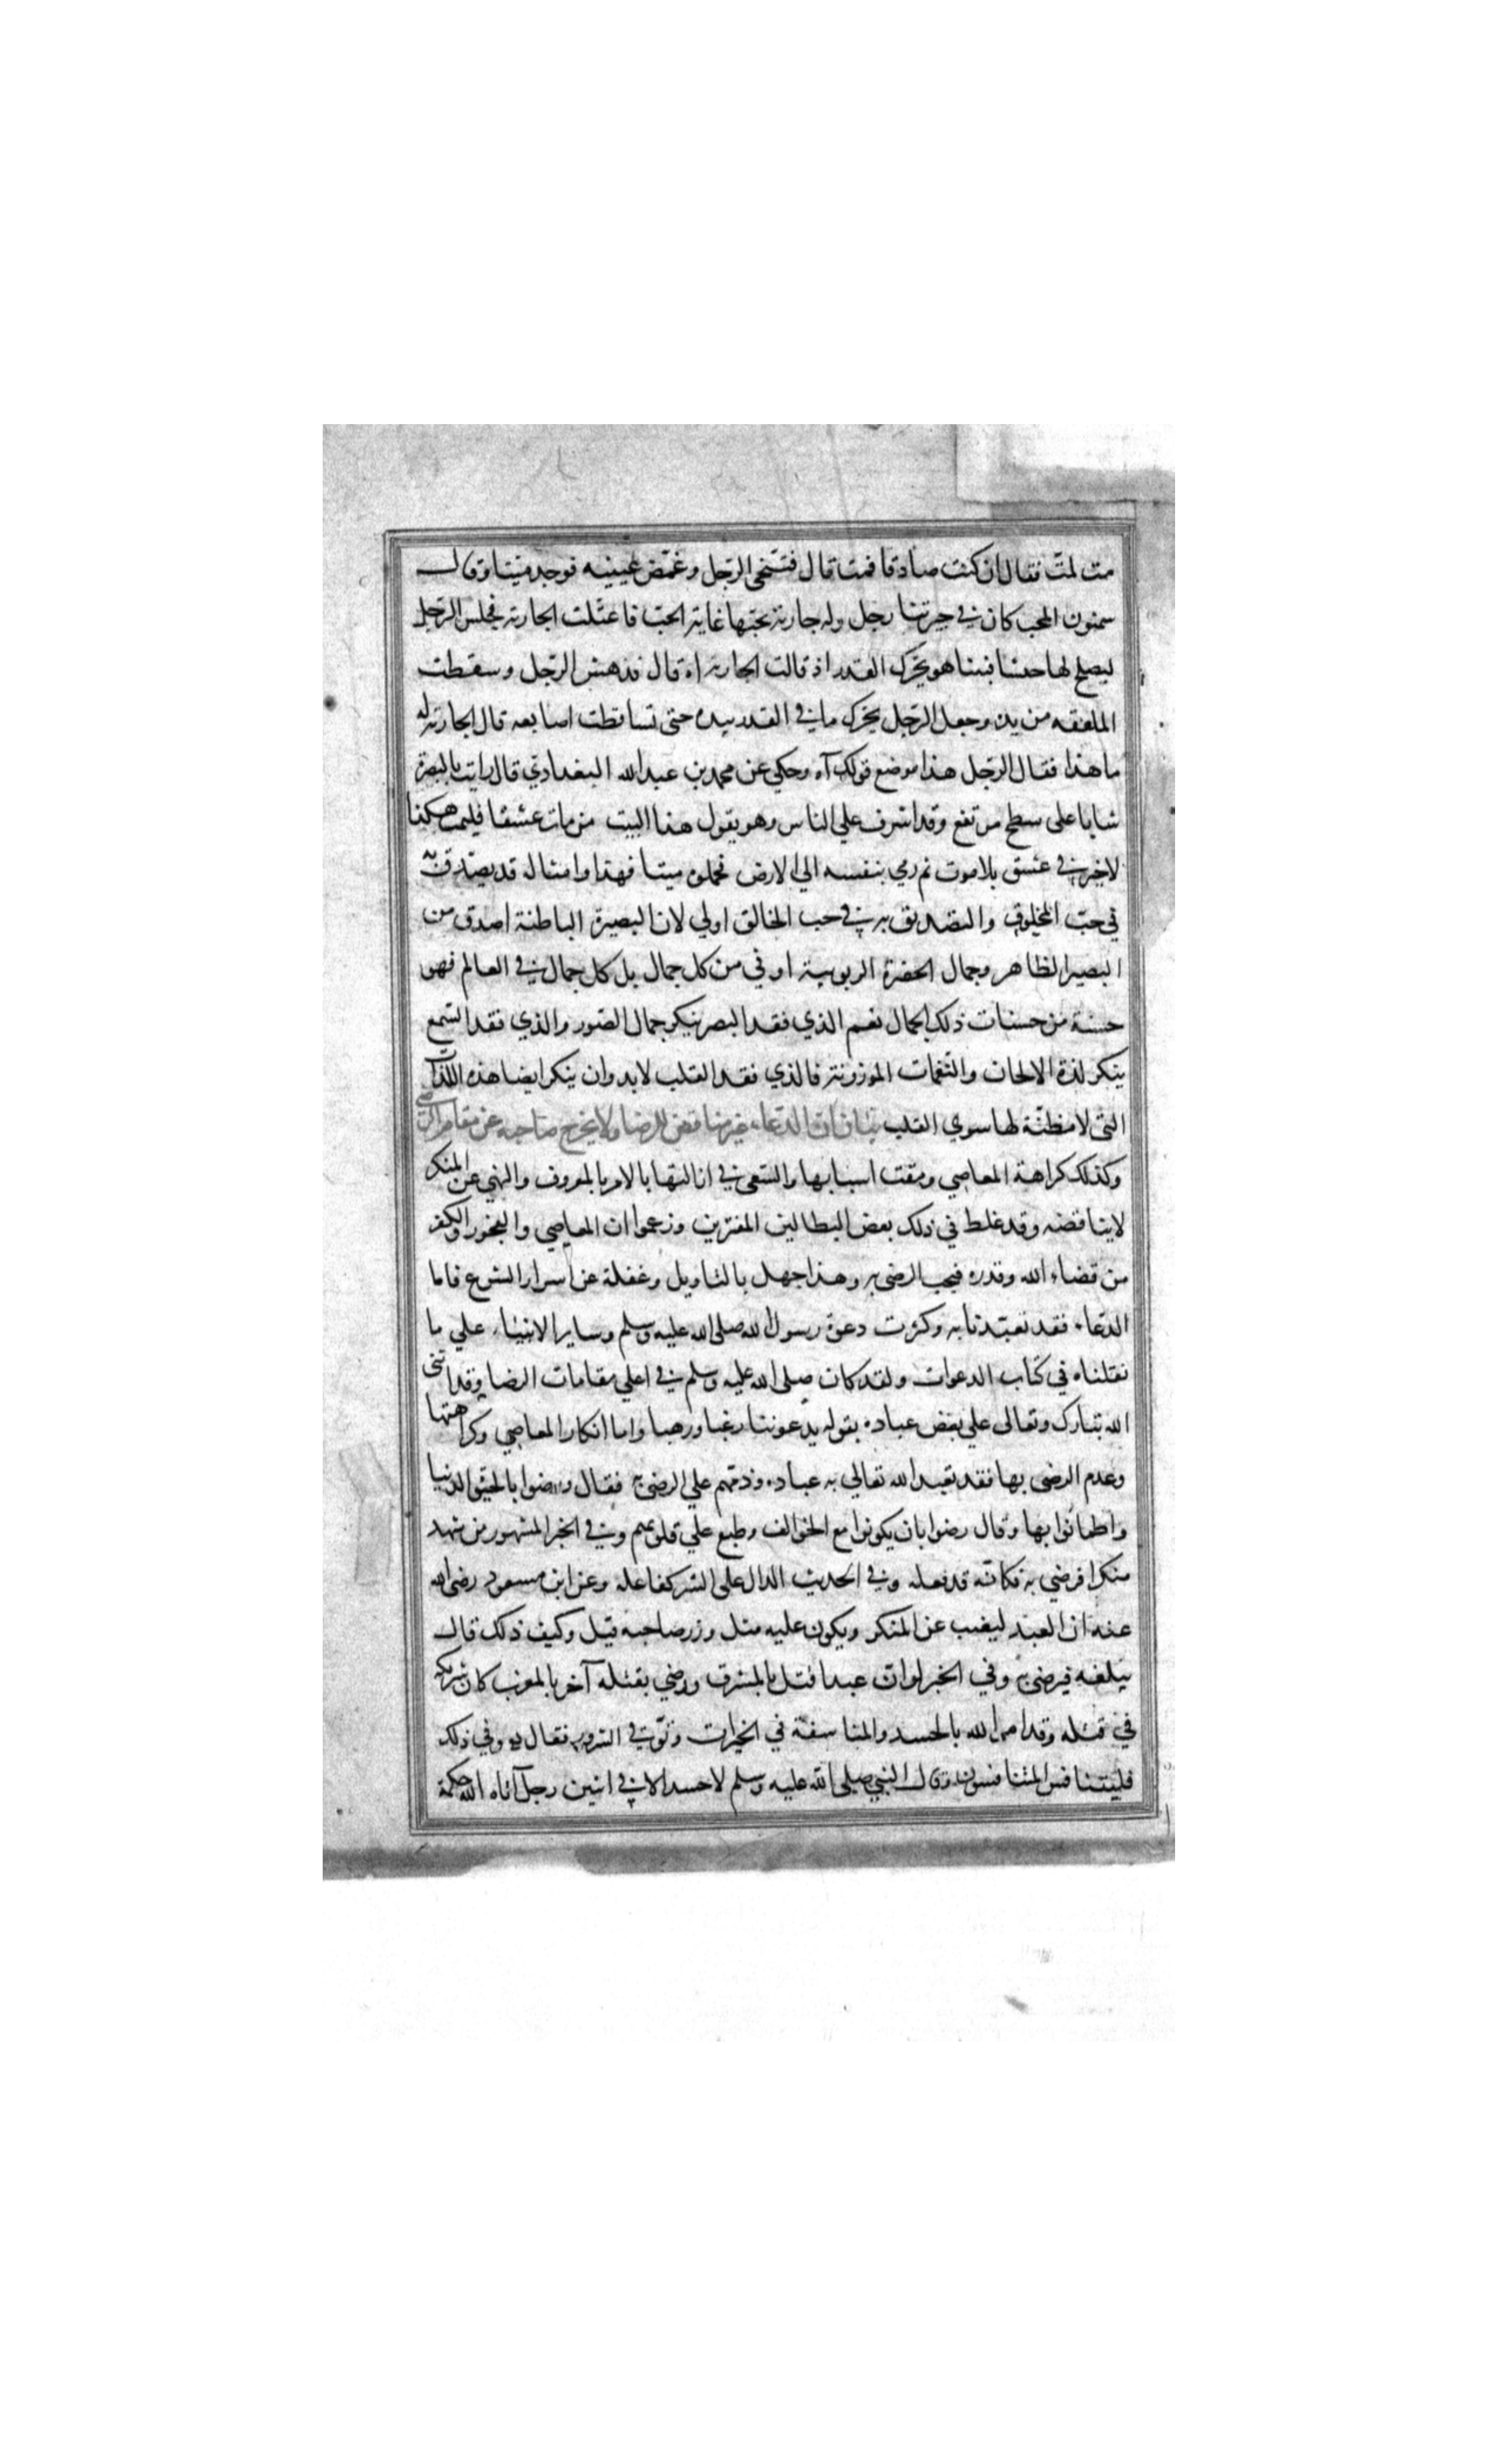 مت لمتّ فقال ان كنت صادقا فمت قال فتنحى الرّجل وغمّض عينيه فوجد ميتا وقال
سمنون المحب كان في جيرتنا رجل وله جارية يحبّها غاية الحبّ فاعتلت الجارية فجلس الرّجل
ليصلح لها حسا فبينا هو يحرّك القدر اذ قالت الجارية اه قال فدهش الرّجل وسقطت
الملعقه من يده وجعل الرّجل يحرّك ما في القدر بيده حتى تساقطت اصابعه قال الجارية له
ما هذا فقال الرّجل هذا موضع قولك آه وحكي عن محمد بن عبد الله البغدادي قال رايت بالبصرة
شابا على سطح مرتفع وقد اشرف علي الناس وهو يقول هذا البيت من مات عشقا فليمت هكذا
لا خير في عشق بلا موت ثم رمي بنفسه الي الارض فحملوه ميتا فهذا وامثاله قد يصدّق به
في حبّ المخلوق والتصديق به في حب الخالق اولي لان البصيرة الباطنة اصدق من
البصير الظاهر وجمال الحضرة الربوبية اوفي من كل جمال بل كل جمال في العالم فهو
حسنة من حسنات ذلك الجمال نعم الذي فقد البصر ينكر جمال الصّور والذي فقد السّمع
ينكر لذة الالحان والنّغمات الموزونة فالذي فقد القلب لابد وان ينكر ايضا هذه اللّذّات
التى لا مظنّة لها سوي القلب بيان ان الدّعاء غير مناقض للرضا ولا يخرج صاحبه عن مقام الرّضى
وكذلك كراهة المعاصي ومقت اسبابها والسّعى في ازالتها بالامر بالمعروف والنهي عن المنكر
لا يناقضه وقد غلط في ذلك بعض البطالين المغترين وزعموا ان المعاصي والفجور والكفر
من قضاء الله وقدره فيجب الرضى به وهذا جهل بالتاويل وغفلة عن اسرار الشرع فاما
الدّعاء فقد تعبّدنا به وكثرت دعوة رسول الله صلى الله عليه وسلم وساير الانبياء علي ما
نقلناه في كتاب الدعوات ولقد كان صلى الله عليه وسلم في اعلي مقامات الرضا وقد اثنى
الله تبارك وتعالى علي بعض عباده بقوله يدعوننا رغبا ورهبا واما انكار المعاصي وكراهتها
وعدم الرضى بها فقد تعبد الله تعالي به عباده وذمّهم علي الرضى به فقال ورضوا بالحيوة الدنيا
واطمانّوا بها وقال رضوا بان يكونوا مع الخوالف وطبع علي قلوبهم وفي الخبر المشهور من شهد
منكرا فرضي به فكانّه قد فعله وفي الحديث الدال على الشر كفاعله وعن ابن مسعود رضى الله
عنه ان العبد ليغيب عن المنكر ويكون عليه مثل وزر صاحبه قيل وكيف ذلك قال
يبلغه فيرضى به وفي الخبر لو ان عبدا قتل بالمشرق ورضي بقتله آخر بالمغرب كان شريكه
في قتله وقد امر الله بالحسد والمنافسة في الخيرات وتوقي الشرور فقال وفي ذلك
فليتنافس المتنافسون وقال النبي صلى الله عليه وسلم لا حسد الا في اثنين رجل آتاه الله حكمة